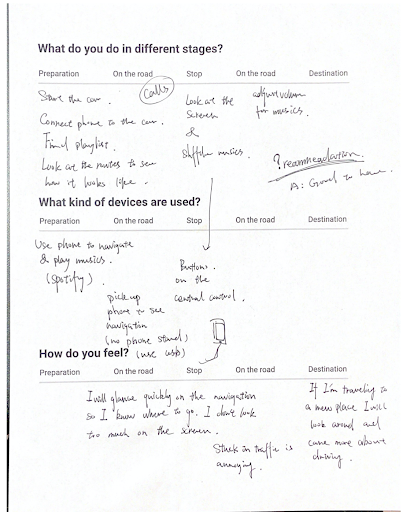 What do you do in different stages?
Preparation On the road Stop On the road Destination
Calls
Start the car.
Connect phone to the car.
Find playlist.
Look at the routes to see
how it looks like.
Look at the
screen
&
shuffle musics.
adjust volume
for musics.
? recommendation.
A: Good to have.
What kind of devices are used?
Preparation On the road Stop On the road Destination
Use phone to navigate
& play musics.
(Spotify)
pick up
phone to see
navigation
(no phone stand)
(use usb)
Buttons
on the
central control.
How do you feel?
Preparation On the road Stop On the road Destination
I will glance quickly on the navigation
so I know where to go. I don't look
too much on the screen.
Stuck in traffic is
annoying.
If I'm traveling to
a new place I will
look around and
care more about
driving.